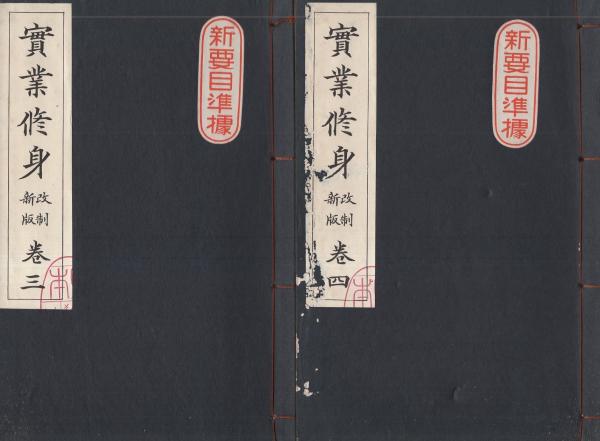 新要目準據
實業修身
改制
新版
卷三
新要目準據
實業修身
改制
新版
卷四